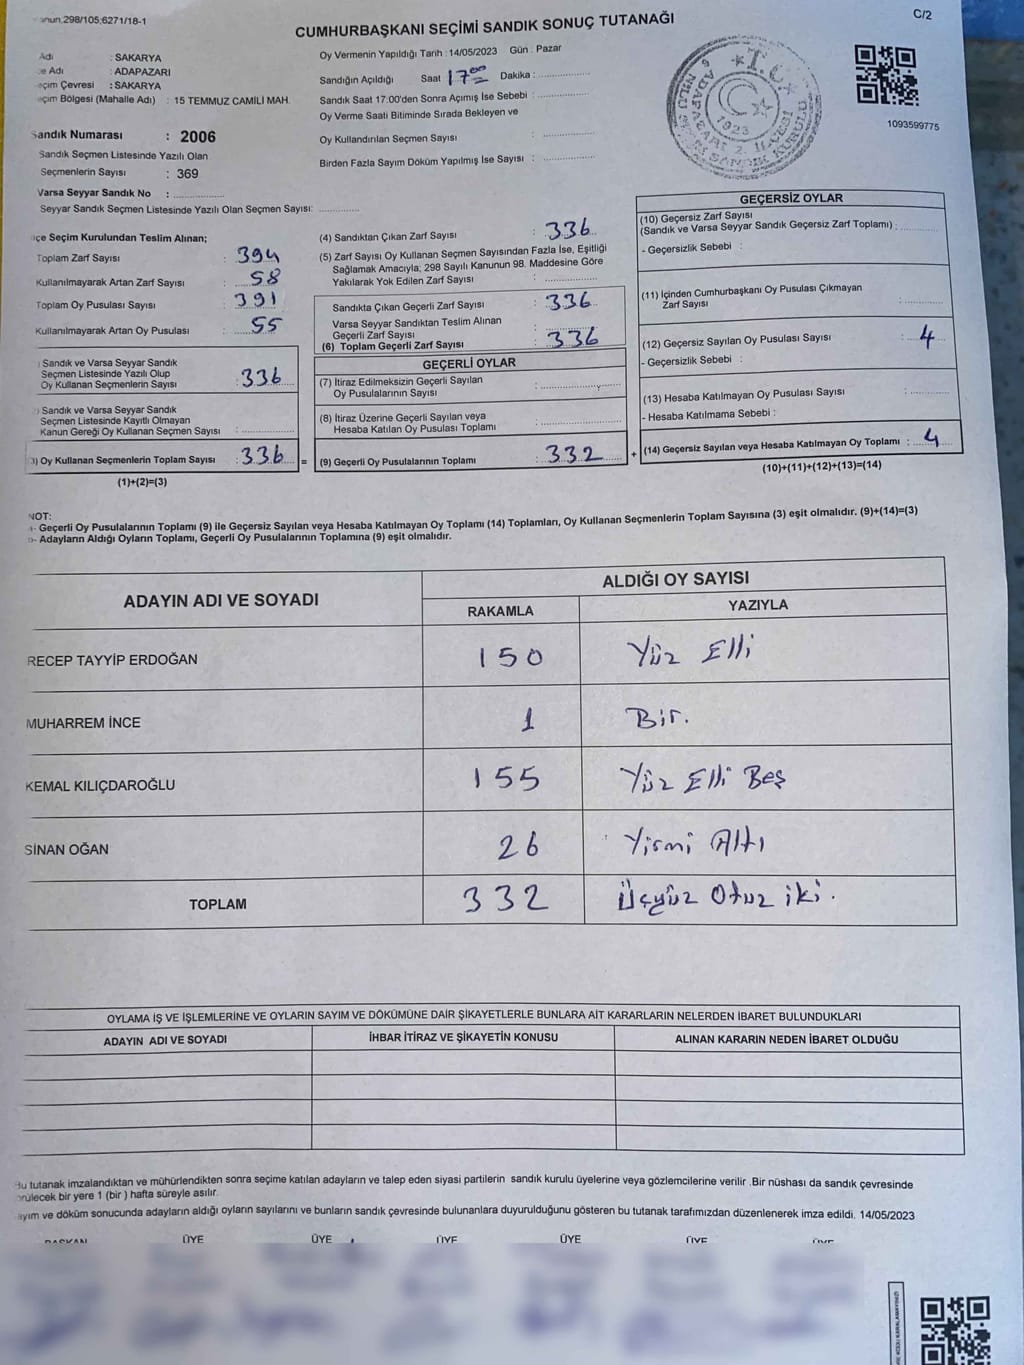 298/105;6271/18-1
C/2
CUMHURBAŞKANI SEÇİMİ SANDIK SONUÇ TUTANAĞI
Adı : SAKARYA
Adı : ADAPAZARI
Çevresi : SAKARYA
Bölgesi (Mahalle Adı) : 15 TEMMUZ CAMİLİ MAH.
Sandık Numarası : 2006
Sandık Seçmen Listesinde Yazılı Olan
Seçmenlerin Sayısı : 369
Varsa Seyyar Sandık No :
Seyyar Sandık Seçmen Listesinde Yazılı Olan Seçmen Sayısı:
Oy Vermenin Yapıldığı Tarih : 14/05/2023 Gün : Pazar
Sandığın Açıldığı Saat 17:00 Dakika :
Sandık Saat 17:00'den Sonra Açımış İse Sebebi :
Oy Verme Saati Bitiminde Sırada Bekleyen ve
Oy Kullandırılan Seçmen Sayısı :
Birden Fazla Sayım Döküm Yapılmış İse Sayısı :
T.C.
1923
ADAPAZARI 2. İLÇESİ
SANDIK KURULU
1093599775
Seçim Kurulundan Teslim Alınan;
Toplam Zarf Sayısı : 394
Kullanılmayarak Artan Zarf Sayısı : 58
Toplam Oy Pusulası Sayısı : 391
Kullanılmayarak Artan Oy Pusulası : 55
Sandık ve Varsa Seyyar Sandık
Seçmen Listesinde Yazılı Olup
Oy Kullanan Seçmenlerin Sayısı : 336
Sandık ve Varsa Seyyar Sandık
Seçmen Listesinde Kayıtlı Olmayan
Kanun Gereği Oy Kullanan Seçmen Sayısı :
Oy Kullanan Seçmenlerin Toplam Sayısı : 336 =
(1)+(2)=(3)
(4) Sandıktan Çıkan Zarf Sayısı : 336
(5) Zarf Sayısı Oy Kullanan Seçmen Sayısından Fazla İse, Eşitliği
Sağlamak Amacıyla; 298 Sayılı Kanunun 98. Maddesine Göre
Yakılarak Yok Edilen Zarf Sayısı :
Sandıkta Çıkan Geçerli Zarf Sayısı : 336
Varsa Seyyar Sandıktan Teslim Alınan
Geçerli Zarf Sayısı :
(6) Toplam Geçerli Zarf Sayısı : 336
GEÇERLİ OYLAR
(7) İtiraz Edilmeksizin Geçerli Sayılan
Oy Pusulalarının Sayısı :
(8) İtiraz Üzerine Geçerli Sayılan veya
Hesaba Katılan Oy Pusulası Toplamı :
(9) Geçerli Oy Pusulalarının Toplamı : 332 +
GEÇERSİZ OYLAR
(10) Geçersiz Zarf Sayısı
(Sandık ve Varsa Seyyar Sandık Geçersiz Zarf Toplamı) :
- Geçersizlik Sebebi :
(11) İçinden Cumhurbaşkanı Oy Pusulası Çıkmayan
Zarf Sayısı :
(12) Geçersiz Sayılan Oy Pusulası Sayısı : 4
- Geçersizlik Sebebi :
(13) Hesaba Katılmayan Oy Pusulası Sayısı :
- Hesaba Katılmama Sebebi :
(14) Geçersiz Sayılan veya Hesaba Katılmayan Oy Toplamı : 4
(10)+(11)+(12)+(13)=(14)
NOT:
- Geçerli Oy Pusulalarının Toplamı (9) ile Geçersiz Sayılan veya Hesaba Katılmayan Oy Toplamı (14) Toplamları, Oy Kullanan Seçmenlerin Toplam Sayısına (3) eşit olmalıdır. (9)+(14)=(3)
- Adayların Aldığı Oyların Toplamı, Geçerli Oy Pusulalarının Toplamına (9) eşit olmalıdır.
ADAYIN ADI VE SOYADI
ALDIĞI OY SAYISI
RAKAMLA YAZIYLA
RECEP TAYYİP ERDOĞAN 150 Yüz Elli
MUHARREM İNCE 1 Bir.
KEMAL KILIÇDAROĞLU 155 Yüz Elli Beş
SİNAN OĞAN 26 Yirmi Altı
TOPLAM 332 Üçyüz Otuz iki.
OYLAMA İŞ VE İŞLEMLERİNE VE OYLARIN SAYIM VE DÖKÜMÜNE DAİR ŞİKAYETLERLE BUNLARA AİT KARARLARIN NELERDEN İBARET BULUNDUKLARI
ADAYIN ADI VE SOYADI İHBAR İTİRAZ VE ŞİKAYETİN KONUSU ALINAN KARARIN NEDEN İBARET OLDUĞU
Bu tutanak imzalandıktan ve mühürlendikten sonra seçime katılan adayların ve talep eden siyasi partilerin sandık kurulu üyelerine veya gözlemcilerine verilir .Bir nüshası da sandık çevresinde
bir yere 1 (bir ) hafta süreyle asılır.
ve döküm sonucunda adayların aldığı oyların sayılarını ve bunların sandık çevresinde bulunanlara duyurulduğunu gösteren bu tutanak tarafımızdan düzenlenerek imza edildi. 14/05/2023
BAŞKAN ÜYE ÜYE ÜYE ÜYE ÜYE ÜYE